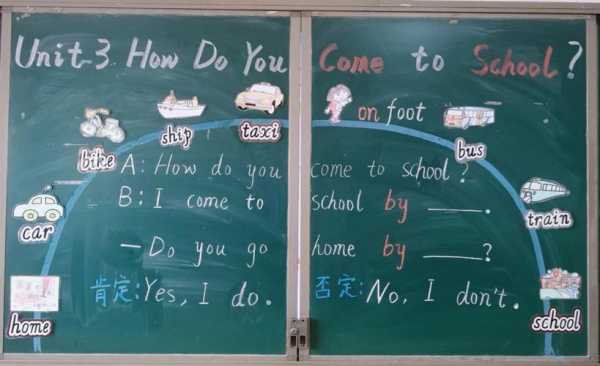 Unit 3 How Do You Come to School?
on foot
taxi
ship
bus
bike
A: How do you come to school?
B: I come to school by ____.
train
car
—Do you go home by ____?
肯定:Yes, I do. 否定:No, I don't.
home
school